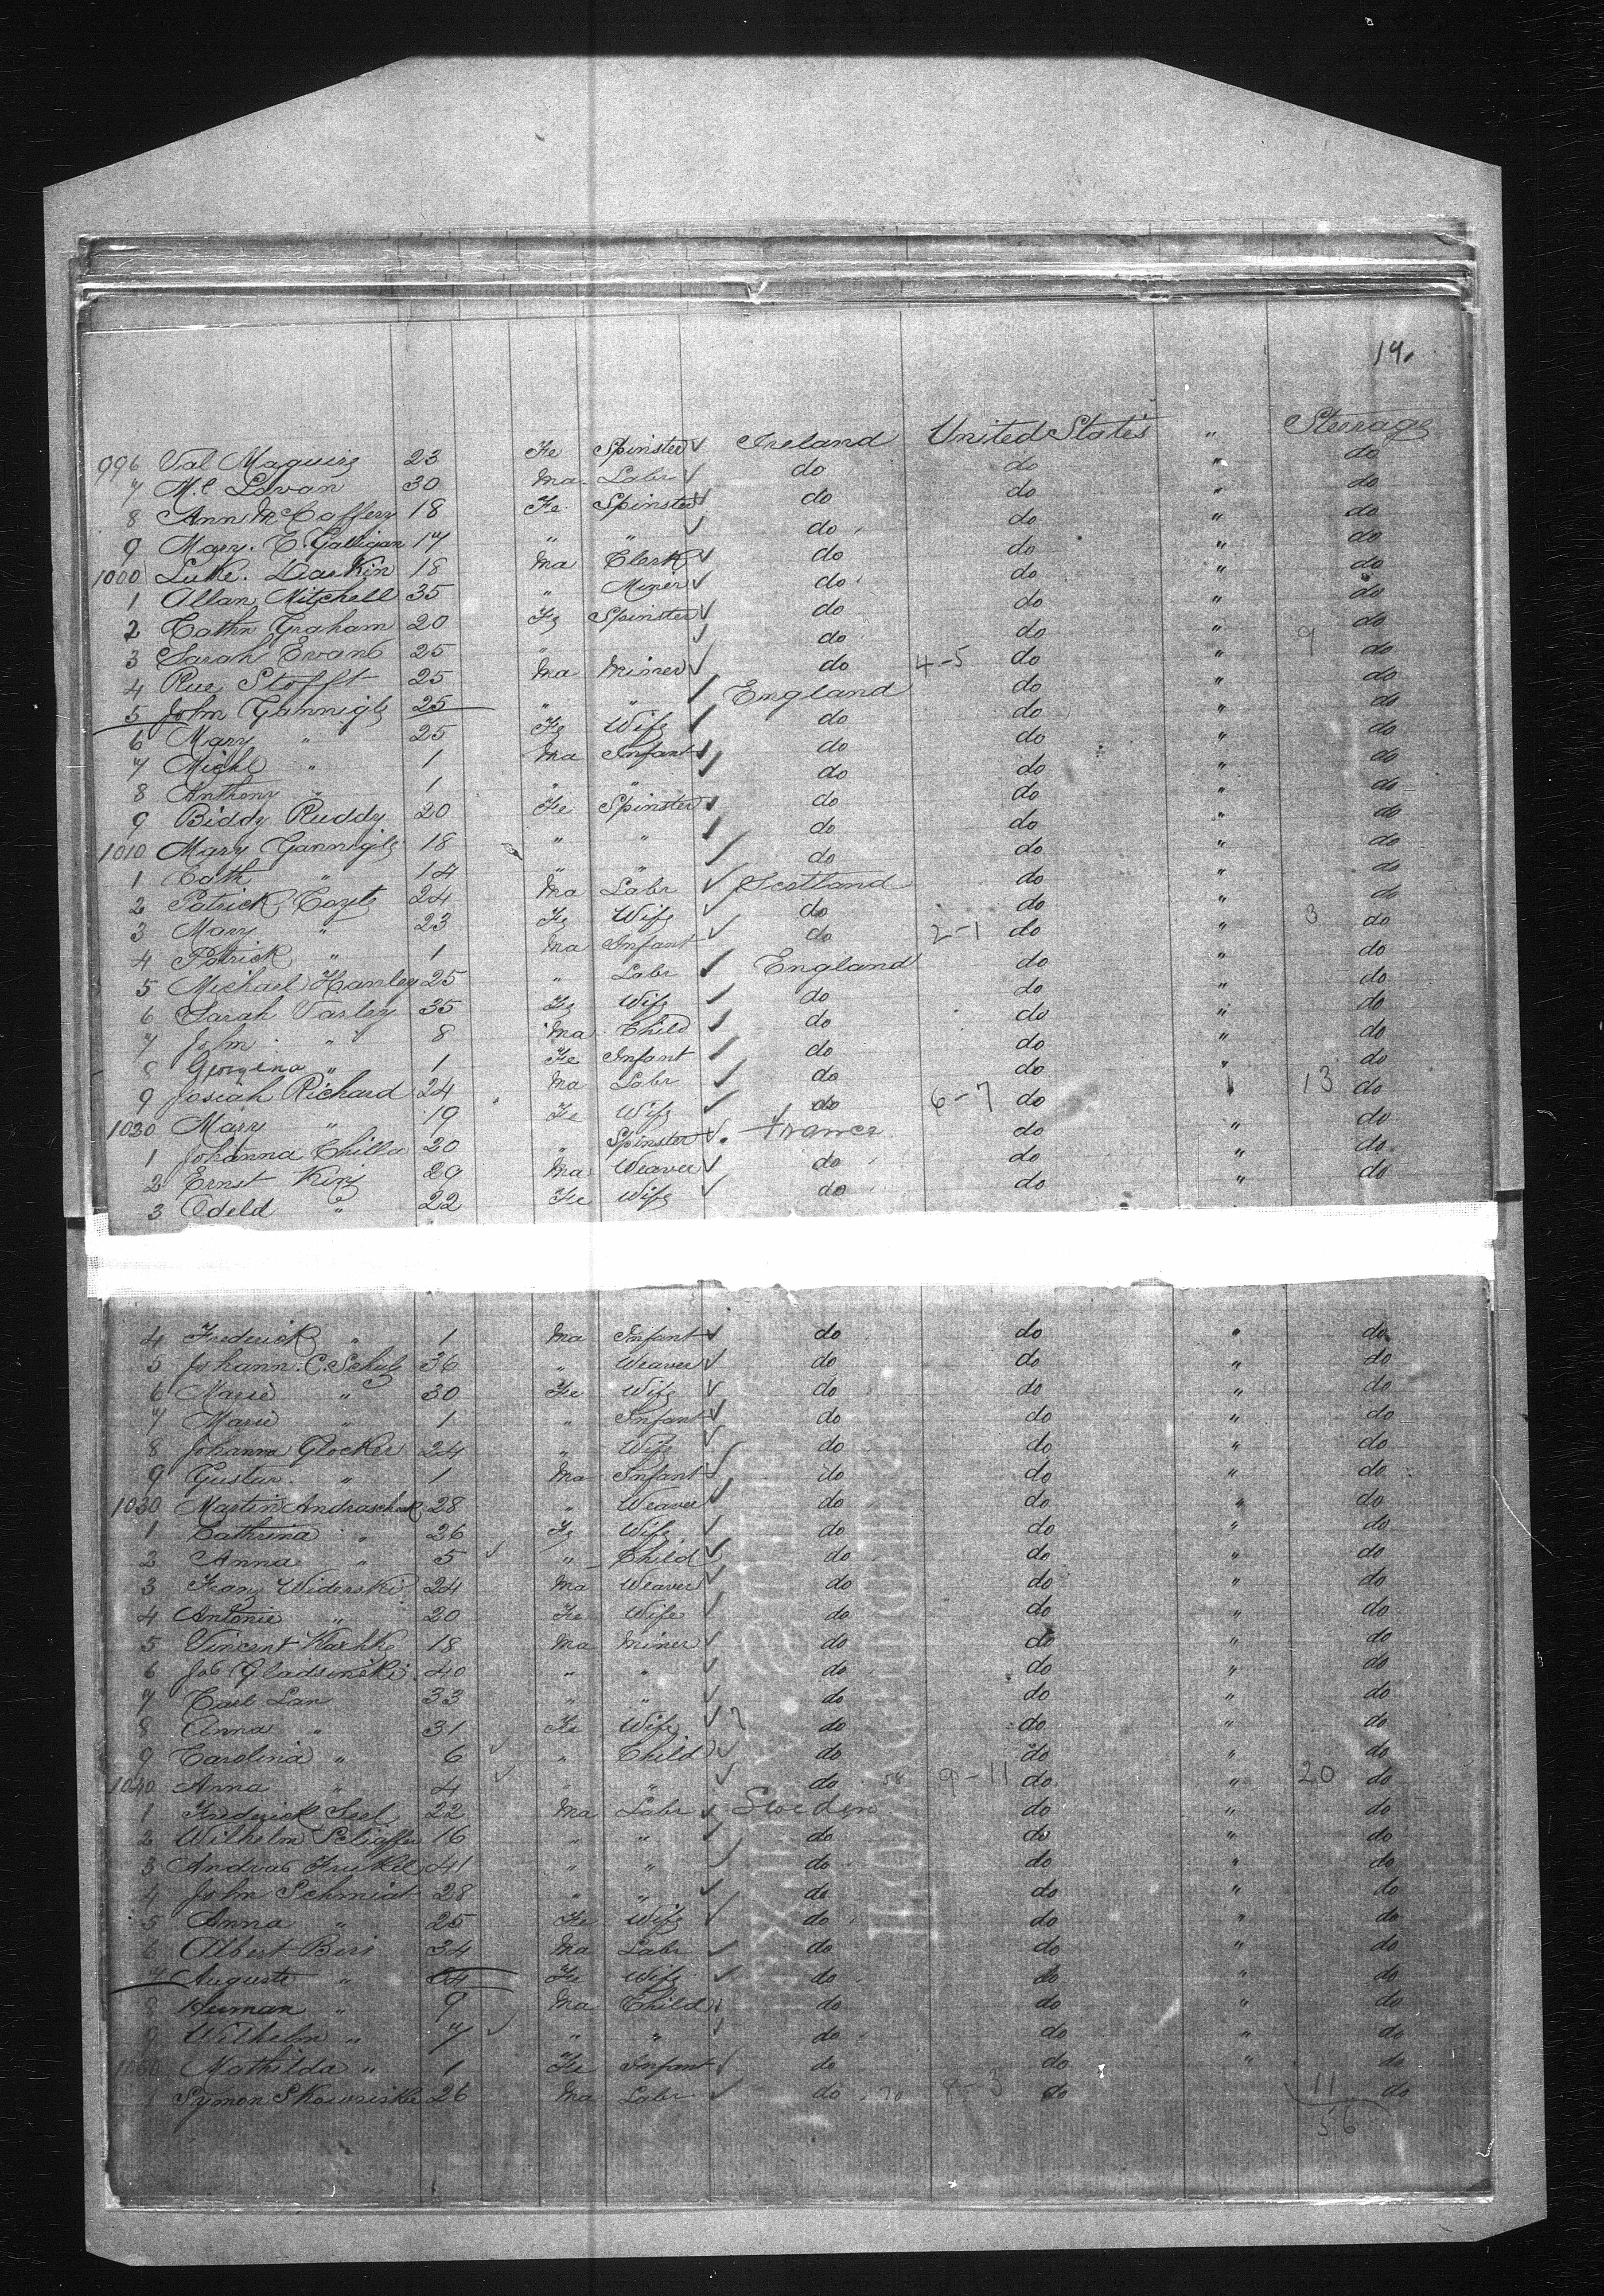 19.
996 Val Maguire 23 Fe Spinster ✓ Ireland United States " Steerage
7 M.l Lavan 30 Ma Labr ✓ do do " do
8 Ann McCaffery 18 Fe Spinster ✓ do do " do
9 Mary. E. Galligan 17 " " ✓ do do " do
1000 Luke. Darkin 18 Ma Clerk ✓ do do " do
1 Allan Mitchell 35 " Miner ✓ do do " do
2 Cathn Graham 20 Fe Spinster ✓ do do " do
3 Sarah Evans 25 " ✓ do do " do
4 Rue Stofft 25 Ma Miner ✓ do 4-5 do " 9 do
5 John Gannigle 25 " " ✓ England do " do
6 Mary " 25 Fe Wife ✓ do do " do
7 Michl " 1 Ma Infant ✓ do do " do
8 Anthony " 1 " " ✓ do do " do
9 Biddy Ruddy 20 Fe Spinster ✓ do do " do
1010 Mary Gannigle 18 " " ✓ do do " do
1 Cath " 14 " " ✓ do do " do
2 Patrick 24 Ma Labr ✓ Scotland do " do
3 Mary " 23 Fe Wife ✓ do do " do
4 Patrick " 1 Ma Infant ✓ do 2-1 do " 3 do
5 Michael Hanley 25 " Labr ✓ England do " do
6 Sarah Varley 35 Fe Wife ✓ do do " do
7 John " 8 Ma Child ✓ do do " do
8 Georgena " 1 Fe Infant ✓ do do " do
9 Josiah Richard 24 Ma Labr ✓ do do " do
1020 Mary " 19 Fe Wife ✓ do 6-7 do " 13 do
1 Johanna Chilla 20 " Spinster ✓ France do " do
2 Ernst King 29 Ma Weaver ✓ do do " do
3 Odeld " 22 Fe Wife ✓ do do " do
4 Frederick " 1 Ma Infant ✓ do do " do
5 Johann. C. Schulz 36 " Weaver ✓ do do " do
6 Marie " 30 Fe Wife ✓ do do " do
7 Marie " 1 " Infant ✓ do do " do
8 Johanna Glocker 24 " Wife ✓ do do " do
9 Gustav. " 1 Ma Infant ✓ do do " do
1030 Martin Andraschek 28 " Weaver ✓ do do " do
1 Cathrina " 26 Fe Wife ✓ do do " do
2 Anna " 5 ✓ " Child ✓ do do " do
3 Franz Widerski 24 Ma Weaver ✓ do do " do
4 Antonie " 20 Fe Wife ✓ do do " do
5 Vincent 18 Ma Miner ✓ do do " do
6 Jos Gladsinski 40 " " ✓ do do " do
7 Carl Lan 33 " " ✓ do do " do
8 Anna " 31 Fe Wife ✓ do do " do
9 Carolina " 6 ✓ " Child ✓ do do " do
1040 Anna " 4 ✓ " " ✓ do 58 9-11 do " 20 do
1 Frederick Seel 22 Ma Labr ✓ Sweden do " do
2 Wilhelm 16 " " ✓ do do " do
3 Andreas 41 " " ✓ do do " do
4 John Schmidt 28 " " ✓ do do " do
5 Anna " 25 Fe Wife ✓ do do " do
6 Albert Beri 34 Ma Labr ✓ do do " do
7 Auguste " 34 Fe Wife ✓ do do " do
8 Herman " 9 Ma Child ✓ do do " do
9 Wilhelm " 7 ✓ " " ✓ do do " do
1050 Mathilda " 1 Fe Infant ✓ do do " do
1 Symon Skowriskie 26 Ma Labr ✓ do 70 8-3 do 11 do
56